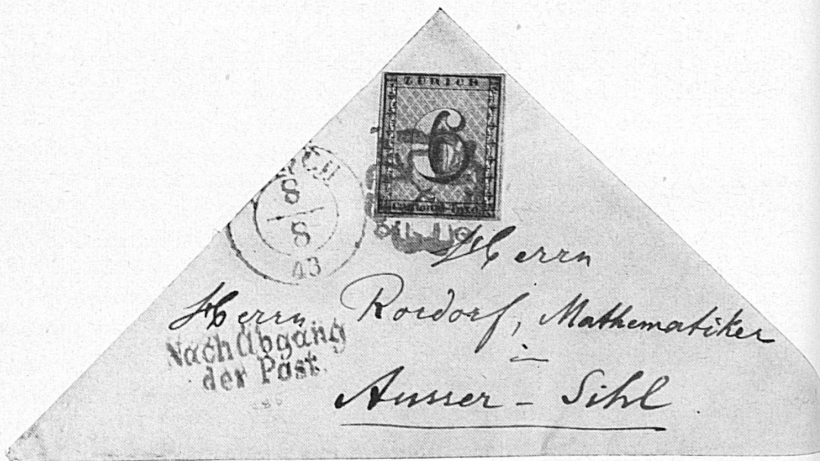 ZÜRICH
6
Cantonal-Taxe.
8
8
43
Herrn
Herrn Rordorf, Mathematiker
in
Ausser-Sihl
Nach Abgang
der Post.